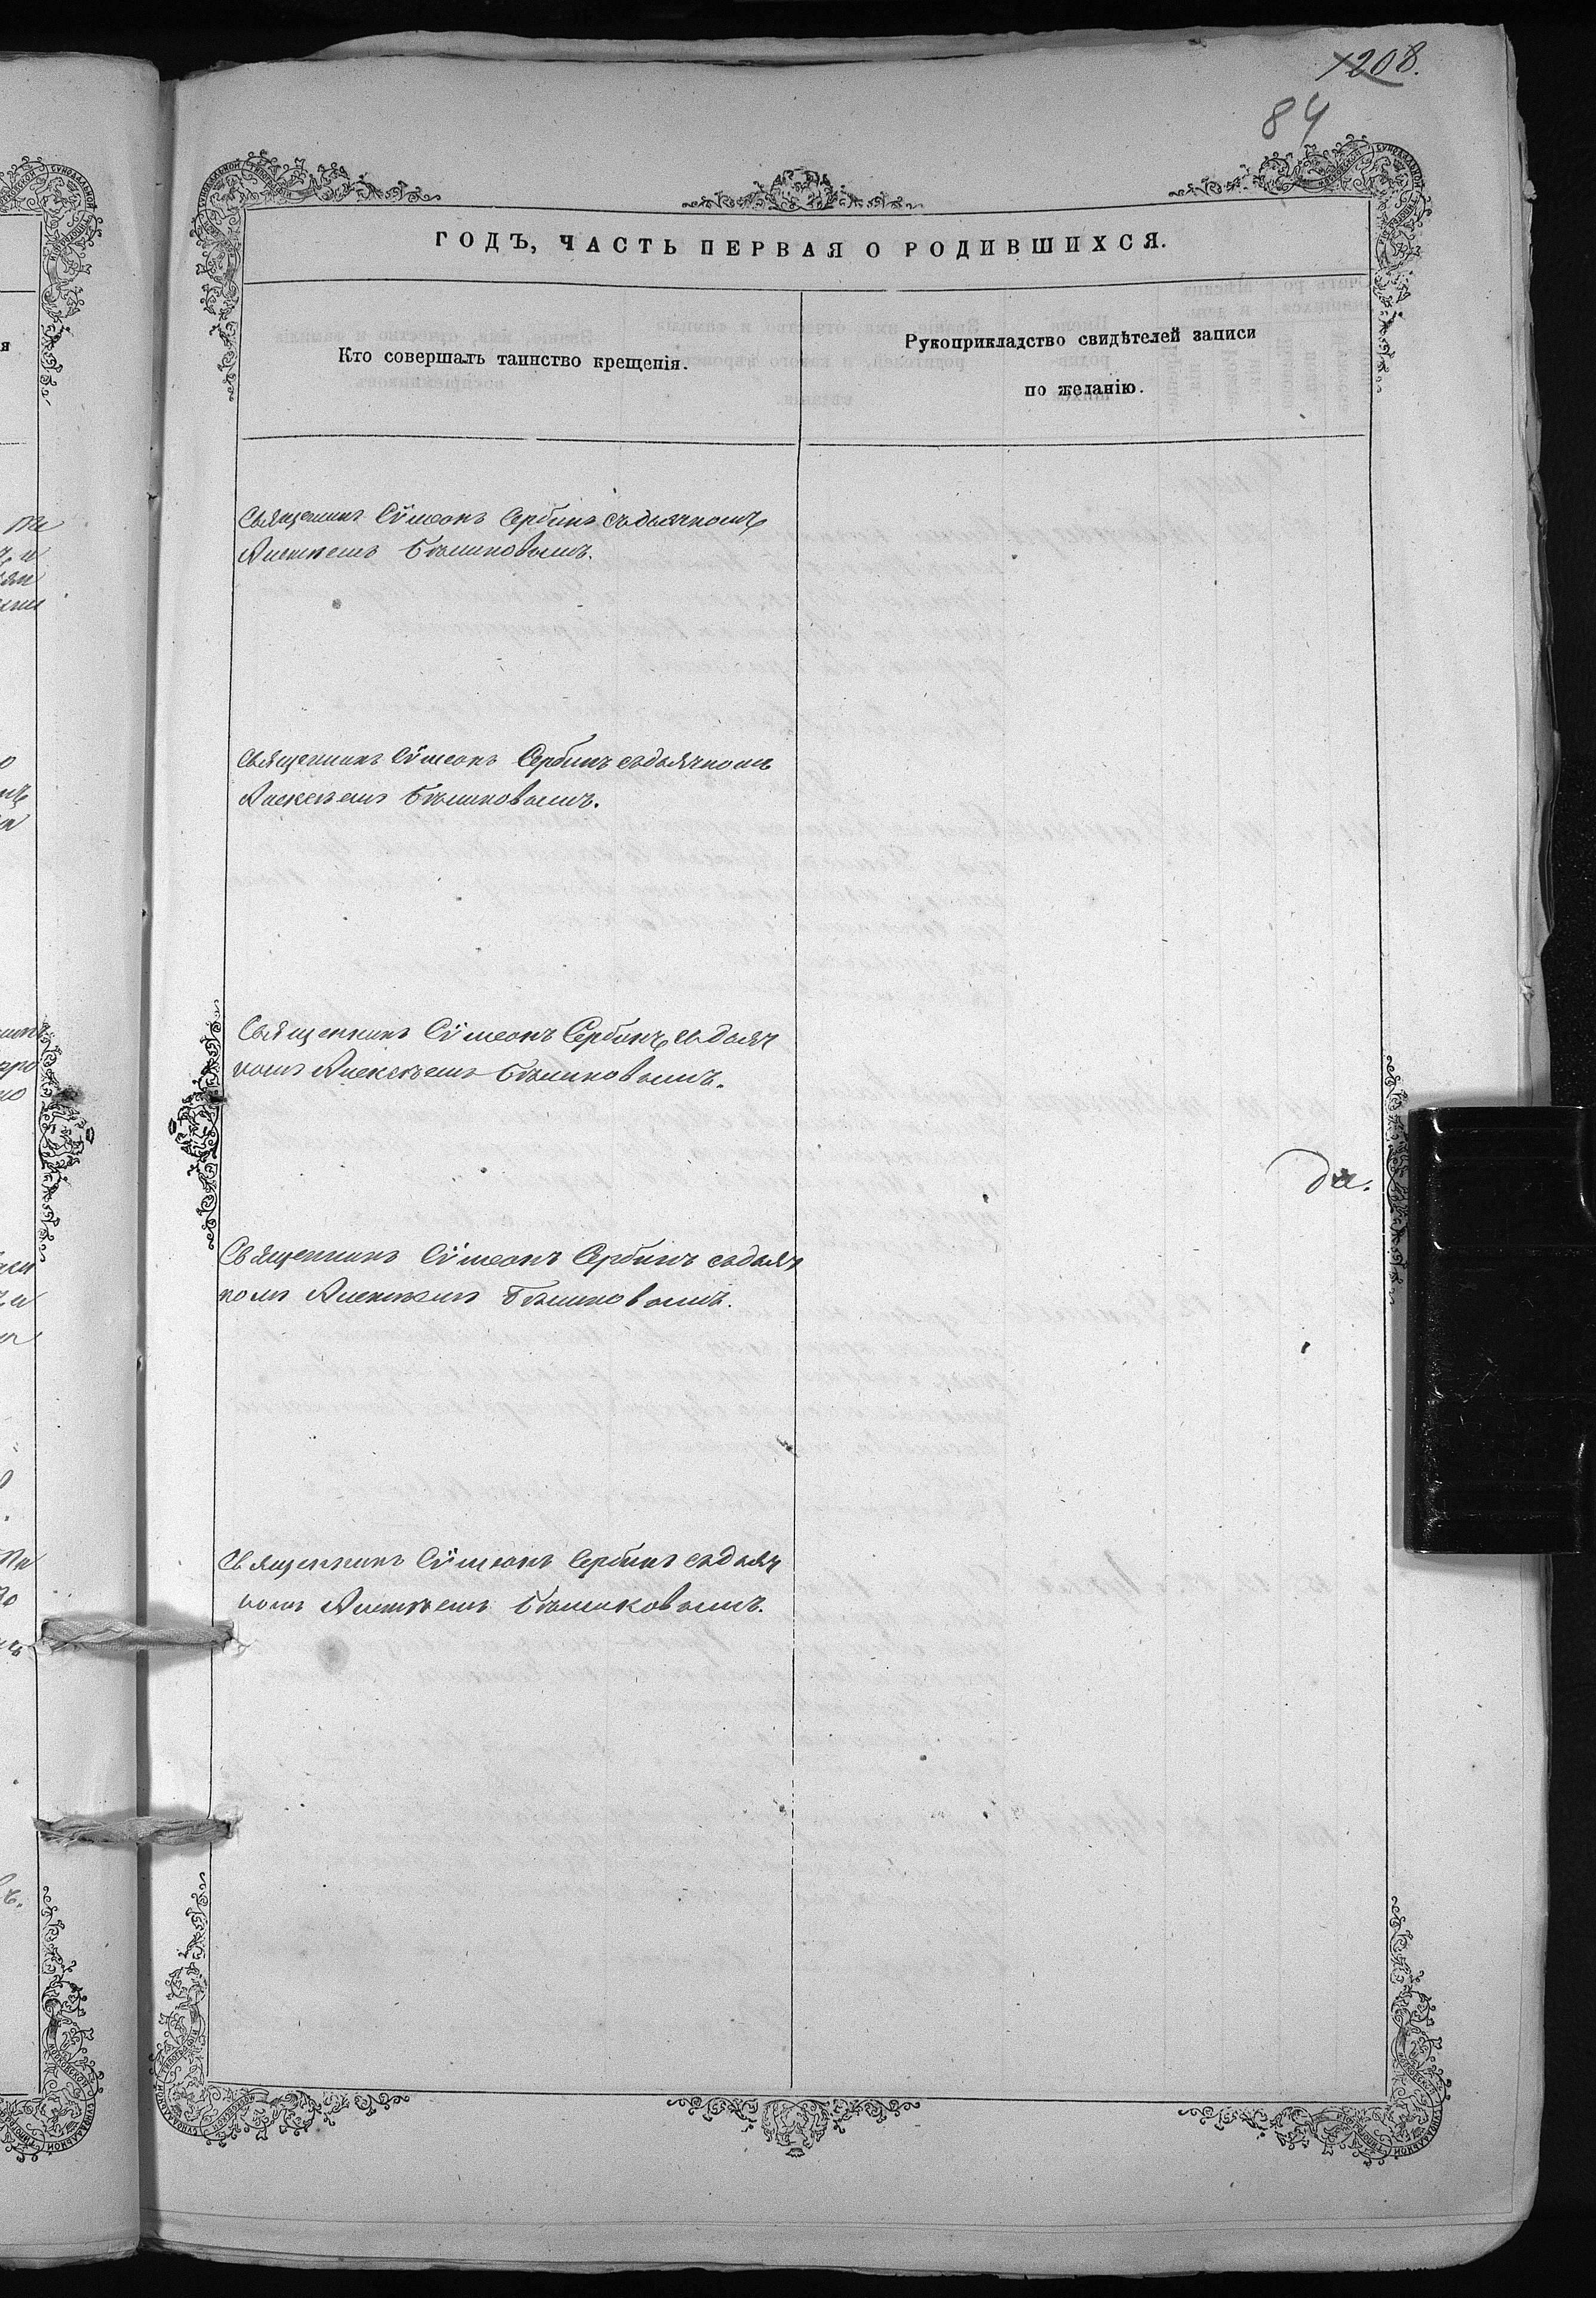 208.
84
ГОДЪ, ЧАСТЬ ПЕРВАЯ О РОДИВШИХСЯ.
Кто совершалъ таинство крещенія.
Рукоприкладство свидѣтелей записи
по желанію.
Священникъ Сѵмеонъ Сербинъ съ дьячкомъ
Алексѣемъ Бѣликовымъ.
Священникъ Сѵмеонъ Сербинъ съ дьячкомъ
Алексѣемъ Бѣликовымъ.
Священникъ Сѵмеонъ Сербинъ съ дьяч
комъ Алексѣемъ Бѣликовымъ.
да.
Священникъ Сѵмеонъ Сербинъ съ дьяч
комъ Алексѣемъ Бѣликовымъ.
Священникъ Сѵмеонъ Сербинъ съ дьяч
комъ Алексѣемъ Бѣликовымъ.